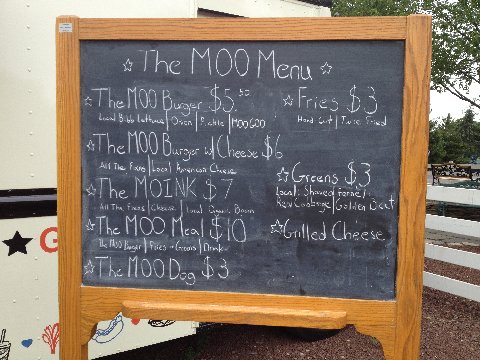 The MOO Menu
The MOO Burger $5.50
Local Bibb Lettuce | Onion | Pickle | MOO GOO
The MOO Burger w/ Cheese $6
All The Fixins | Local American Cheese
The MOINK $7
All The Fixins | Cheese | Local Bacon
The MOO Meal $10
The Moo Burger | Fries or Greens | Drink
The MOO Dog $3
Fries $3
Hand Cut | Twice Fried
Greens $3
Local, Shaved Fennel
Cabbage | Golden Beet
Grilled Cheese
G